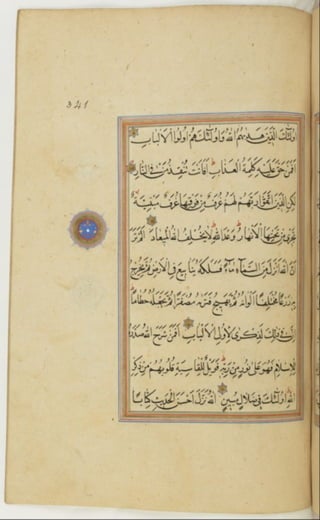 341
ولئك الذين هديهم الله واولئك هم اولوا الالباب
افمن حق عليه كلمة العذاب افانت تنقذ من في النار
لكن الذين اتقوا ربهم لهم غرف من فوقها غرف مبنية
تجري من تحتها الانهار وعد الله لا يخلف الله الميعاد الم تر
ان الله انزل من السماء ماء فسلكه ينابيع في الارض ثم يخرج
به زرعا مختلفا الوانه ثم يهيج فتريه مصفرا ثم يجعله حطاما
ان في ذلك لذكرى لاولي الالباب افمن شرح الله صدره
للاسلام فهو على نور من ربه فويل للقاسية قلوبهم من ذكر
الله اولئك في ضلال مبين الله نزل احسن الحديث كتابا